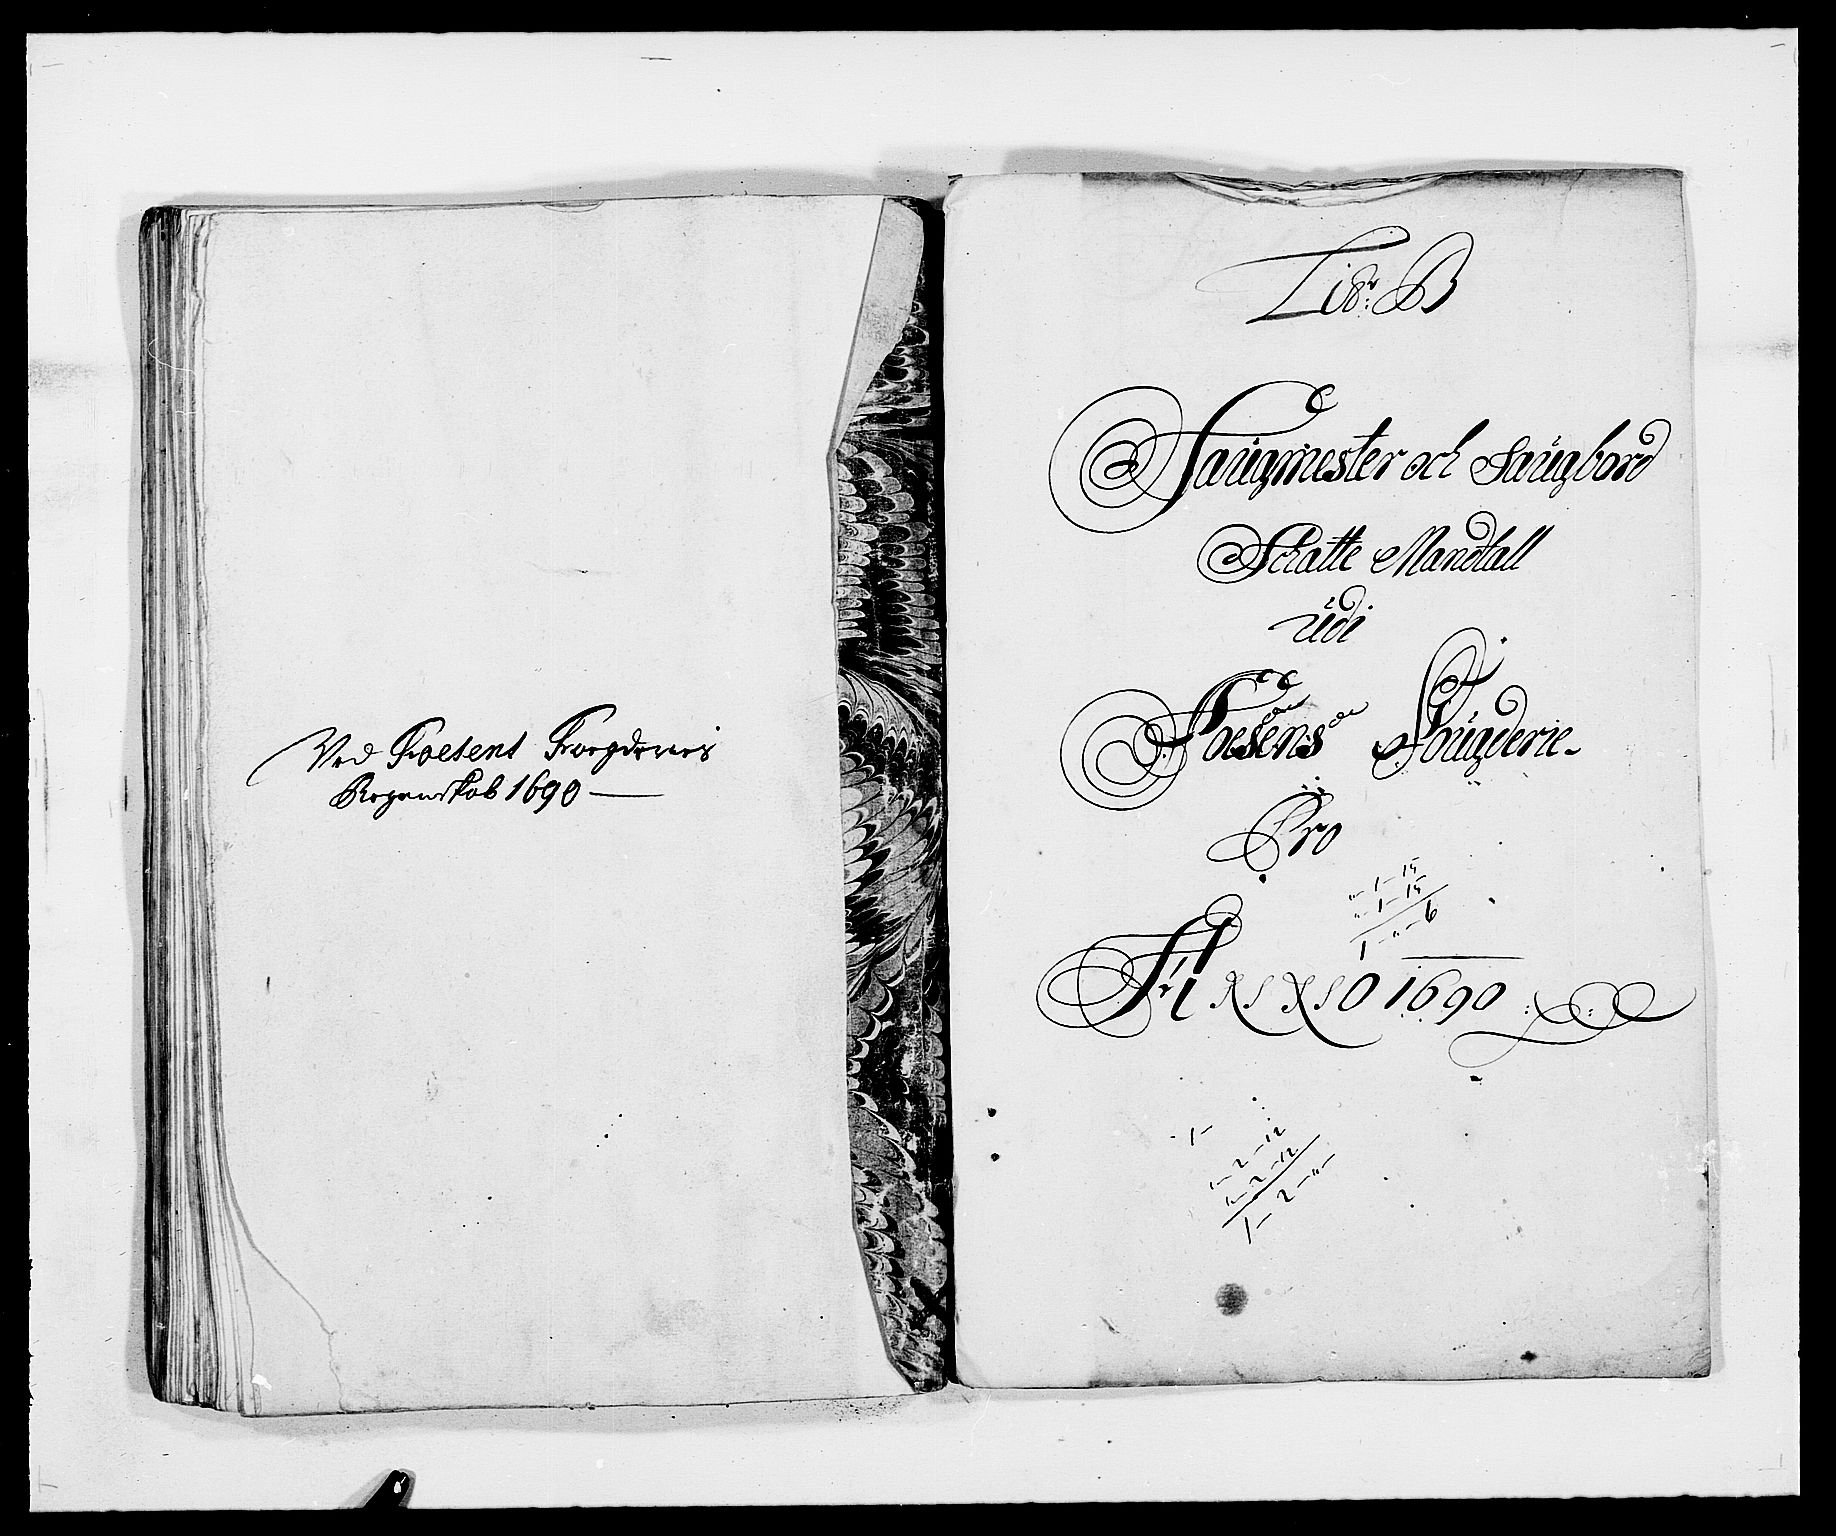 Ved Foesens Foegderies
Regenskab 1690
Litr: B
Saugmester och Saugbord
Schatte Mandtall
üdi
Foesens Fougderie
Pro
" - 1 - 15
" - 1 - 15
1 - " - 6
ANNO 1690
1 -
" - 2 - 12
" - 2 - 12
1 - 2 - " -